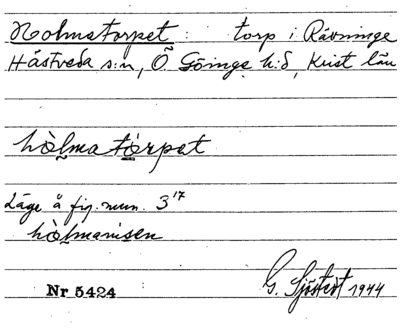 Holmatorpet: torp i Rävninge
Hästveda s:n, Ö. Göinge h:d, Krist län
hòlmatórpat
Läge å fig. num. 3¹⁷
hòlmanisen
G. Sjöstedt 1944
Nr 5424